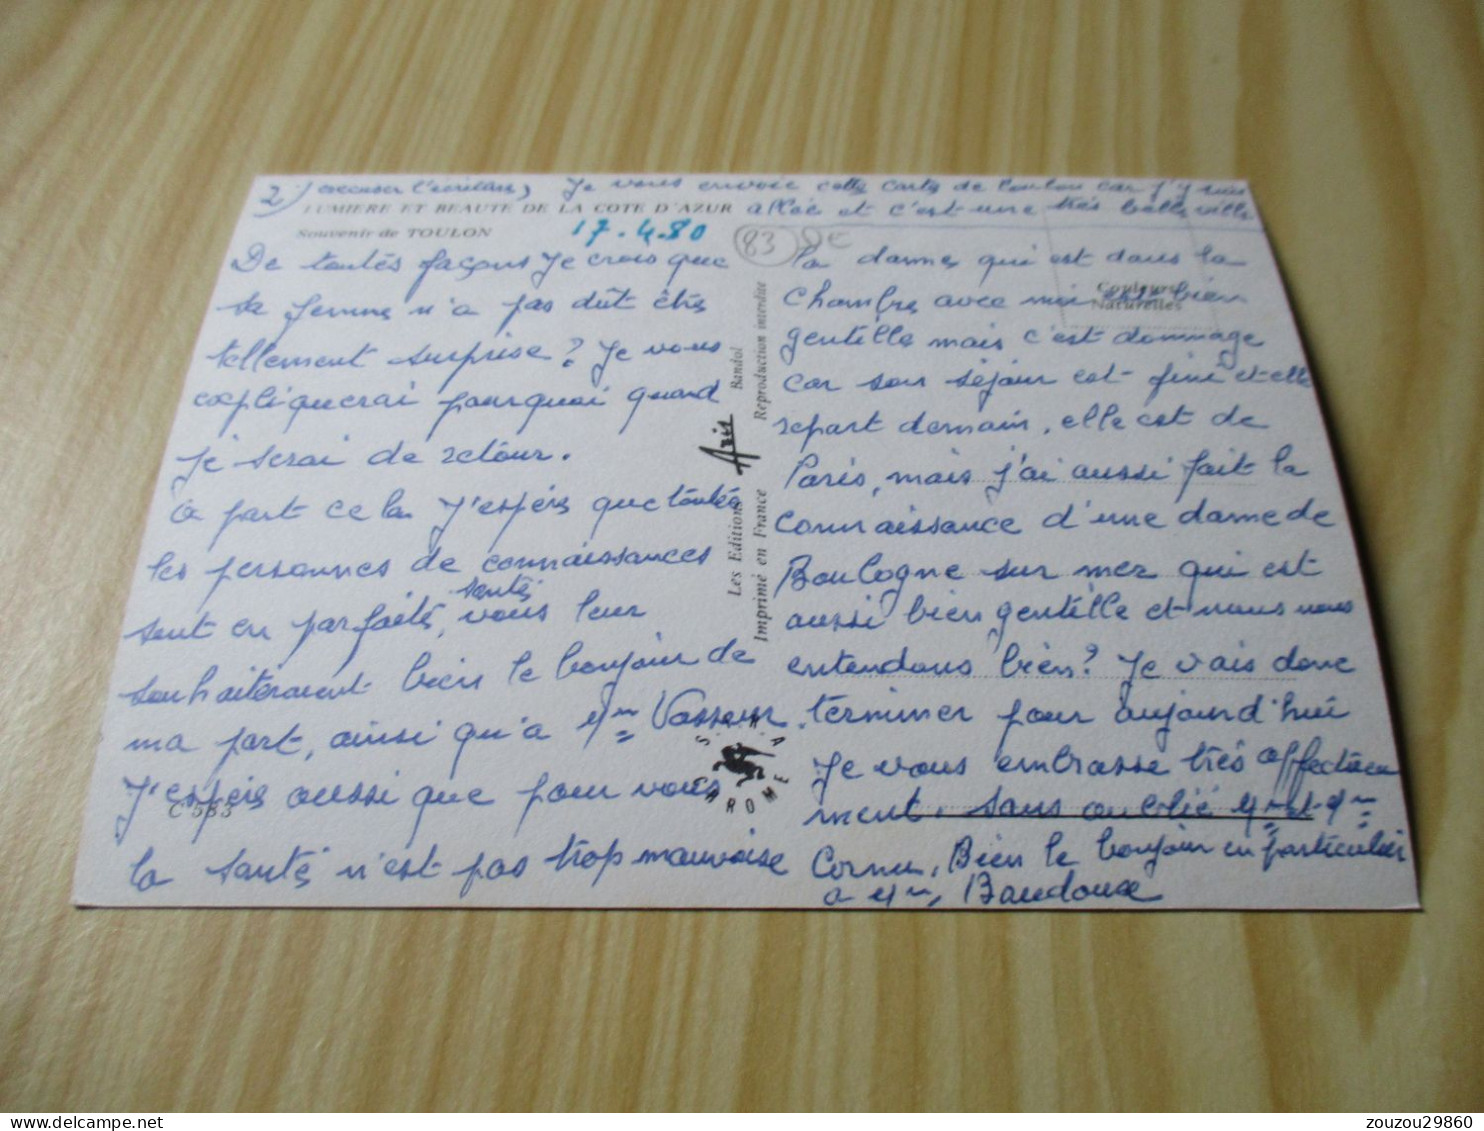 2) excuser l'écriture, Je vous envoie cette carte de Toulon car j'y suis
allée et c'est une très belle ville
LUMIERE ET BEAUTE DE LA COTE D'AZUR
Souvenir de TOULON
17.4.80
83
De toutes façons je crois que
sa femme n'a pas dût être
tellement surprise? Je vous
expliquerai pourquoi quand
je serai de retour.
a part cela J'espère que toutes
les personnes de connaissances
sont en parfaite santé, vous leur
souhaiterez bien le bonjour de
ma part, ainsi qu'a Mme Vasseur.
J'espère aussi que pour vous
la santé n'est pas trop mauvaise
C 533
Les Editions Aris Bandol
Imprimé en France Reproduction interdite
Couleurs
Naturelles
la dame qui est dans la
chambre avec moi est bien
gentille mais c'est dommage
car son séjour est fini et elle
repart demain, elle est de
Paris, mais j'ai aussi fait la
connaissance d'une dame de
Boulogne sur mer qui est
aussi bien gentille et nous nous
entendons bien? Je vais donc
terminer pour aujourd'hui
Je vous embrasse très affectueu
ment. sans oublié Mr et Mme
Cornu, Bien le bonjour en particulier
a Mme Baudouce
zouzou29860